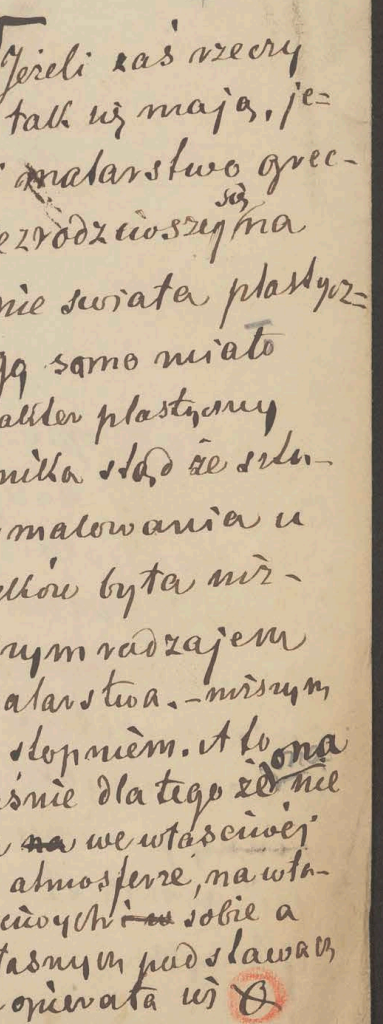 Jeżeli zaś rzeczy
tak się mają, je=
malarstwo grec-
ezrodziwszy się na
nie swiata plastycz=
gą samo miało
akter plastyczny
nika stąd że sztu-
malowania u
eków była niż-
zym rodzajem
alarstwa. - niższym
stopniem. A to
eśnie dlatego że ona nie
na we właściwéj
atmosferze, na wła-
ciwych i w sobie a
łasnych podstawach
opierała się